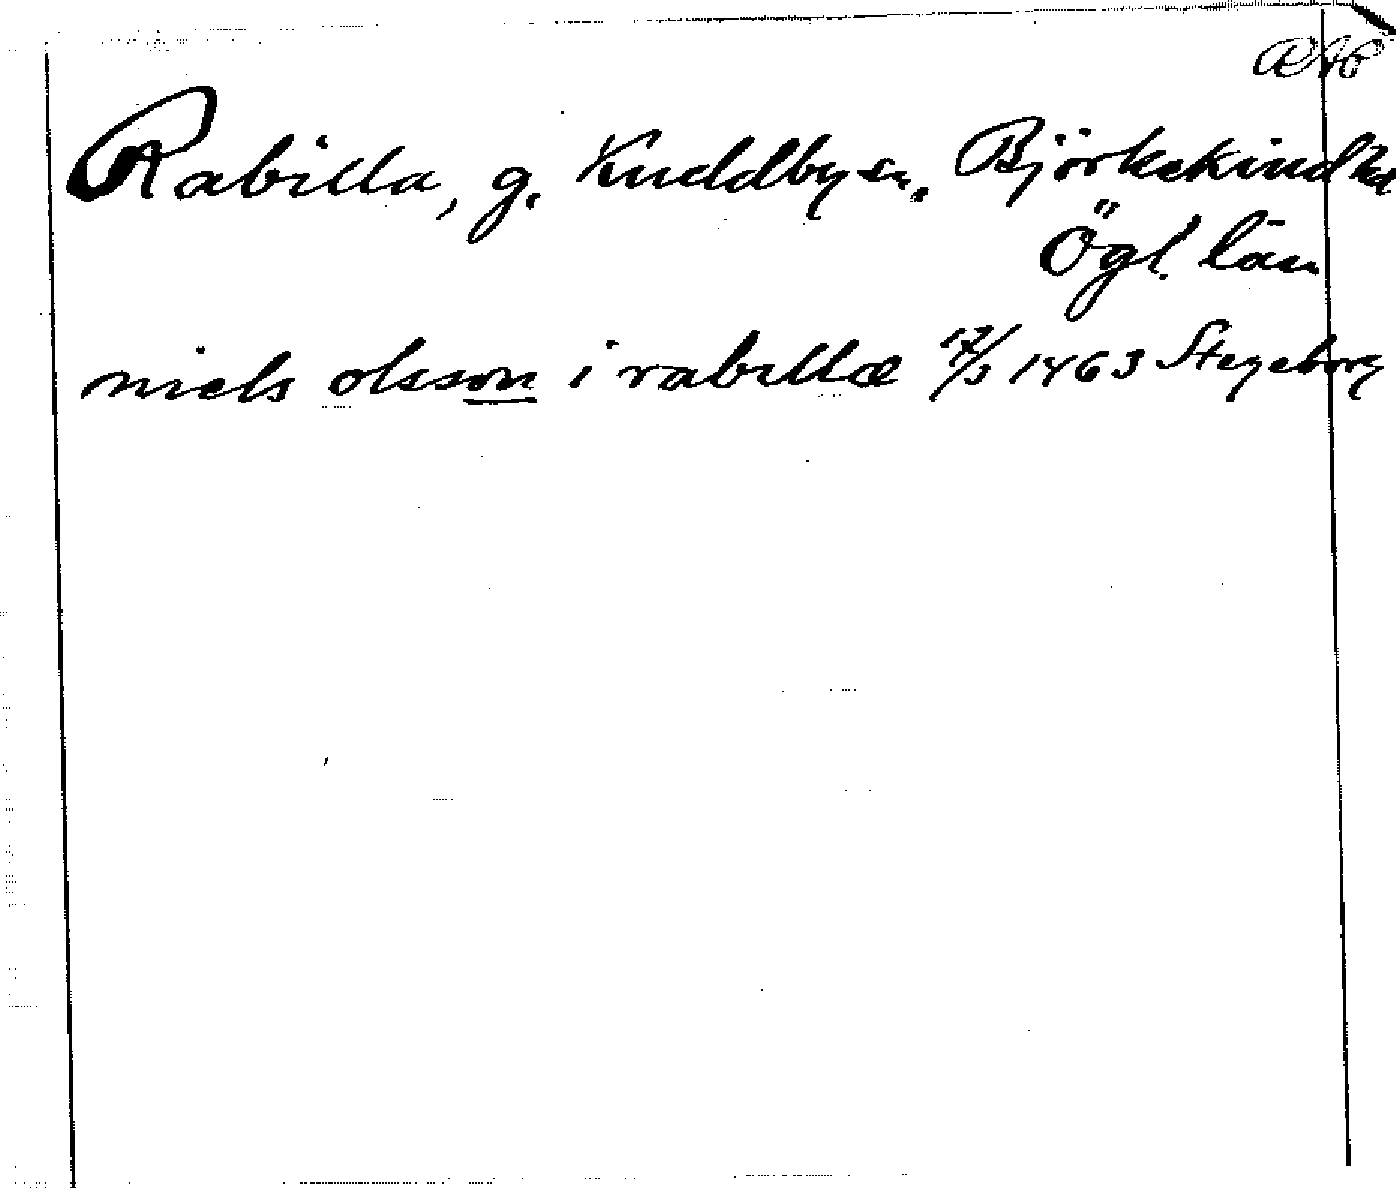 Rabilla, g. Kuddby sn. Björkekind hd
Ögl. län
niels olsson i rabillæ 17/3 1463 Stegeborg